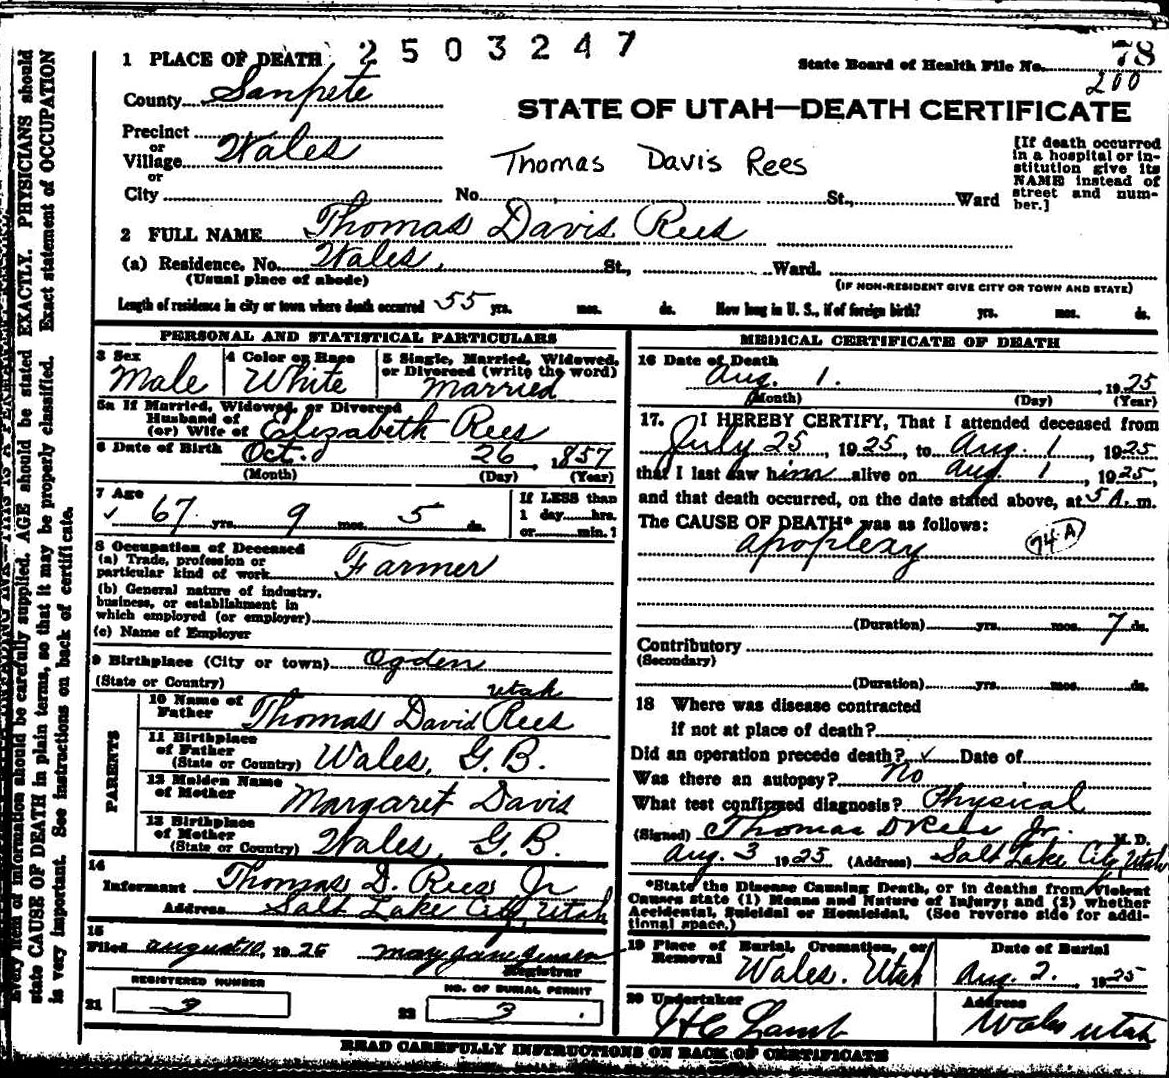 2503247
1 PLACE OF DEATH
State Board of Health File No. 78
200
County Sanpete
STATE OF UTAH—DEATH CERTIFICATE
Precinct
or
Village Wales
or
City
Thomas Davis Rees
No. St., Ward
[If death occurred in a hospital or institution give its NAME instead of street and number.]
2 FULL NAME Thomas Davis Rees
(a) Residence, No. Wales, St., Ward.
(Usual place of abode)
(IF NON-RESIDENT GIVE CITY OR TOWN AND STATE)
Length of residence in city or town where death occurred 55 yrs. mos. ds. How long in U. S., if of foreign birth? yrs. mos. ds.
PERSONAL AND STATISTICAL PARTICULARS
3 Sex
Male
4 Color or Race
White
5 Single, Married, Widowed,
or Divorced (write the word)
Married
5a If Married, Widowed, or Divorced
Husband of
(or) Wife of Elizabeth Rees
6 Date of Birth Oct. 26, 1857
(Month) (Day) (Year)
7 Age
67 yrs. 9 mos. 5 ds.
If LESS than
1 day hrs.
or min.?
8 Occupation of Deceased
(a) Trade, profession or
particular kind of work Farmer
(b) General nature of industry,
business, or establishment in
which employed (or employer)
(c) Name of Employer
9 Birthplace (City or town) Ogden
(State or Country) Utah
PARENTS
10 Name of
Father Thomas David Rees
11 Birthplace
of Father
(State or Country) Wales, G.B.
12 Maiden Name
of Mother Margaret Davis
13 Birthplace
of Mother
(State or Country) Wales, G.B.
14
Informant Thomas D. Rees Jr
Address Salt Lake City, Utah
15
Filed August 10, 1925 Mary Jane
Registrar
REGISTERED NUMBER
21 3
NO. OF BURIAL PERMIT
22 3
MEDICAL CERTIFICATE OF DEATH
16 Date of Death
Aug. 1. 1925
(Month) (Day) (Year)
17. I HEREBY CERTIFY, That I attended deceased from
July 25, 1925, to Aug. 1, 1925
that I last saw him alive on Aug. 1, 1925,
and that death occurred, on the date stated above, at 5 A. m.
The CAUSE OF DEATH* was as follows:
apoplexy 74A
(Duration) yrs. mos. 7 ds.
Contributory
(Secondary)
(Duration) yrs. mos. ds.
18 Where was disease contracted
if not at place of death?
Did an operation precede death? ✓ Date of
Was there an autopsy? No
What test confirmed diagnosis? Physical
(Signed) Thomas D Rees Jr. M.D.
Aug. 3 1925 (Address) Salt Lake City, Utah
*State the Disease Causing Death, or in deaths from Violent
Causes state (1) Means and Nature of Injury; and (2) whether
Accidental, Suicidal or Homicidal. (See reverse side for addi-
tional space.)
19 Place of Burial, Cremation, or
Removal
Wales. Utah
Date of Burial
Aug. 2. 1925
20 Undertaker
H C Lamb
Address
Wales Utah
READ CAREFULLY INSTRUCTIONS ON BACK OF CERTIFICATE
Every item of information should be carefully supplied. AGE should be stated EXACTLY. PHYSICIANS should
state CAUSE OF DEATH in plain terms, so that it may be properly classified. Exact statement of OCCUPATION
is very important. See instructions on back of certificate.